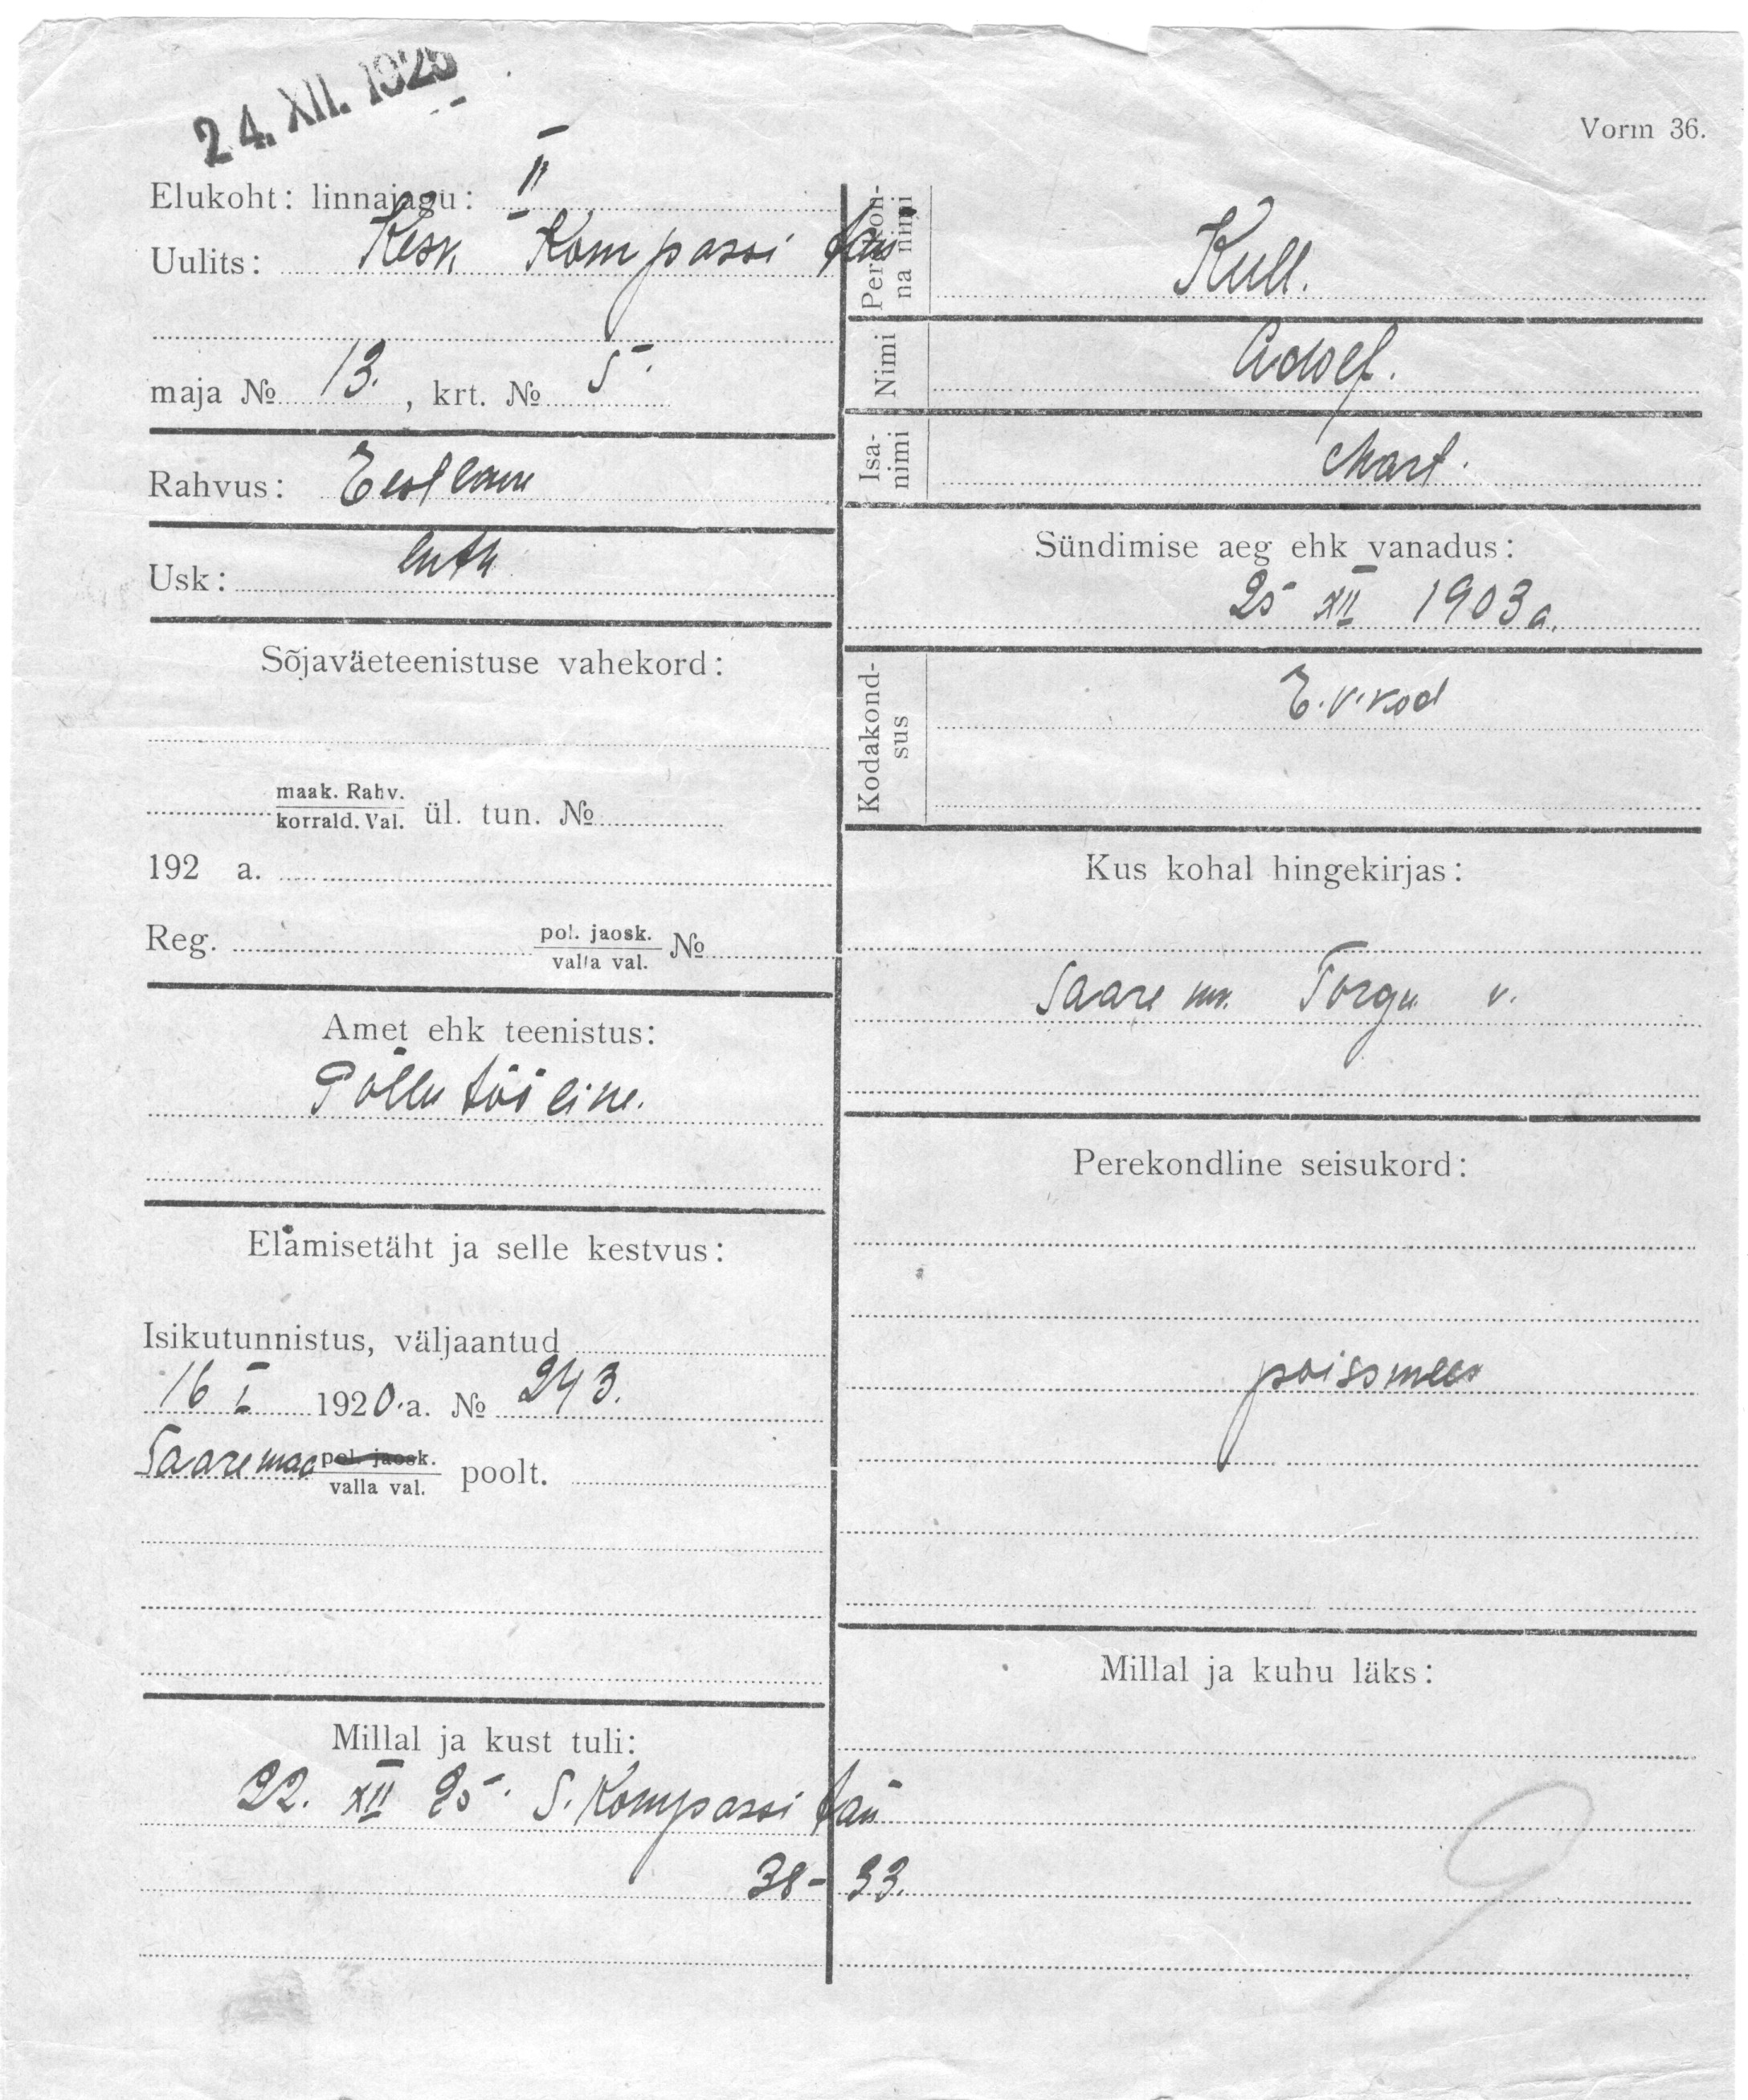 24. XII. 1925
Vorm 36.
Elukoht: linnajagu: II
Uulits: Kesk Kompassi tän
maja № 13. , krt. № 5.
Rahvus: Eestlane
Usk: luth
Sõjaväeteenistuse vahekord:
maak. Rahv.
korrald. Val. ül. tun. №
192 a.
Reg. pol. jaosk.
valla val. №
Amet ehk teenistus:
Põllutööline.
Elamisetäht ja selle kestvus:
Isikutunnistus, väljaantud
16 I 1920.a. № 243.
Saaremaa pol. jaosk.
valla val. poolt.
Millal ja kust tuli:
22. XII 25. S. Kompassi tän
38-33.
Perekon-
na nimi
Kull.
Nimi
Adolf.
Isa-
nimi
Mart.
Sündimise aeg ehk vanadus:
25 XII 1903 a.
Kodakond-
sus
E.v.kod
Kus kohal hingekirjas:
Saare mk. Torgu v.
Perekondline seisukord:
poissmees
Millal ja kuhu läks:
9